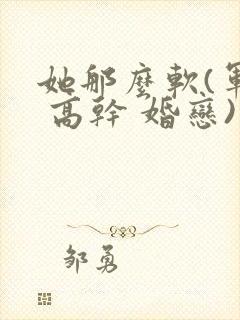 她那麼軟(軍
高幹 婚戀)
邹勇